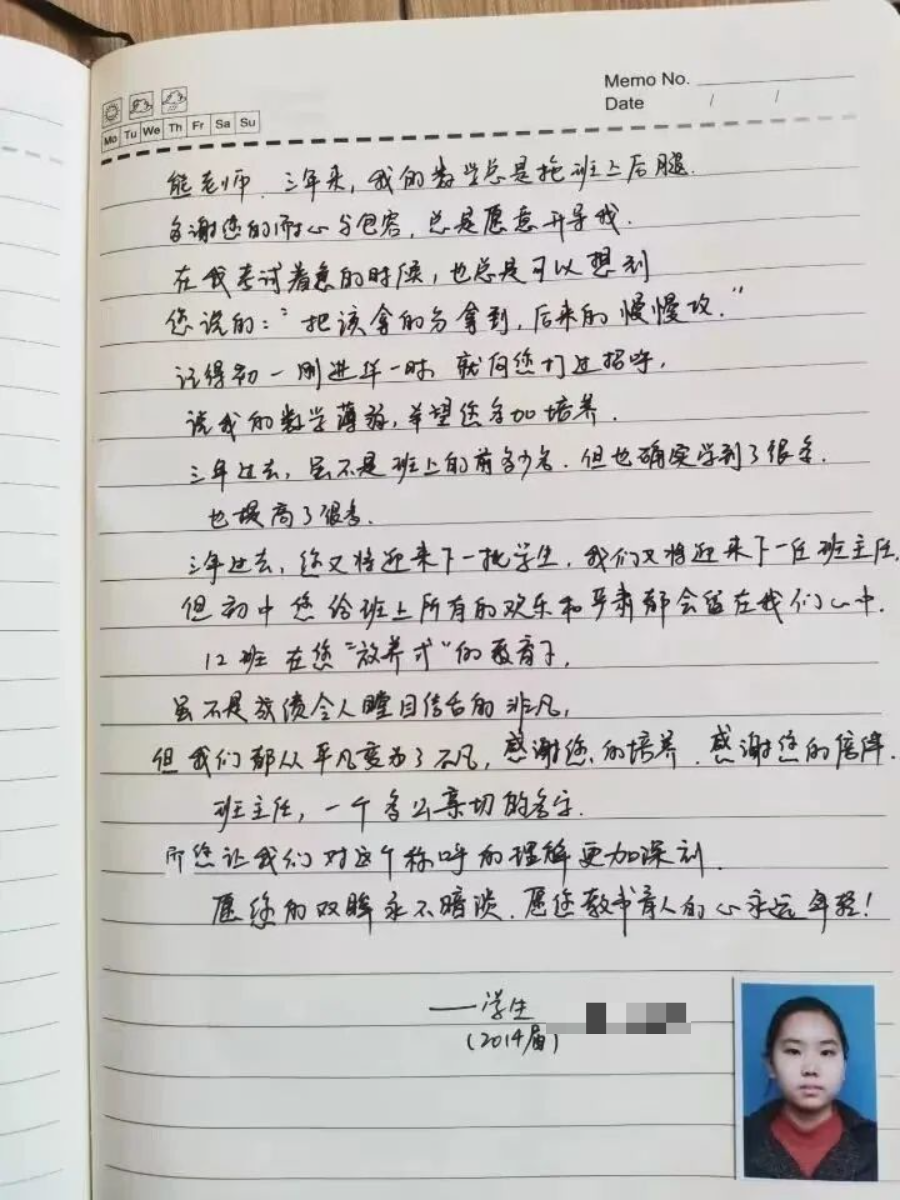 Memo No.
Date / /
Mo Tu We Th Fr Sa Su
熊老师.三年来,我的数学总是拖班上后腿.
多谢您的耐心与包容,总是愿意开导我.
在我考试着急的时候,也总是可以想到
您说的:“把该拿的分拿到,后来的慢慢攻.”
记得初一刚进华一时,就向您打过招呼,
说我的数学薄弱,希望您多加培养.
三年过去,虽不是班上的前多少名.但也确实学到了很多.
也提高了很多.
三年过去,您又将迎来下一批学生,我们又将迎来下一任班主任.
但初中您给班上所有的欢乐和严肃都会留在我们心中.
12班在您“放养式”的教育下,
虽不是成绩令人瞠目结舌的非凡,
但我们都从平凡变为了不凡,感谢您的培养.感谢您的信任.
班主任,一个多么亲切的名字.
而您让我们对这个称呼的理解更加深刻.
愿您的双眸永不暗淡.愿您教书育人的心永远年轻!
——学生
(2014届)